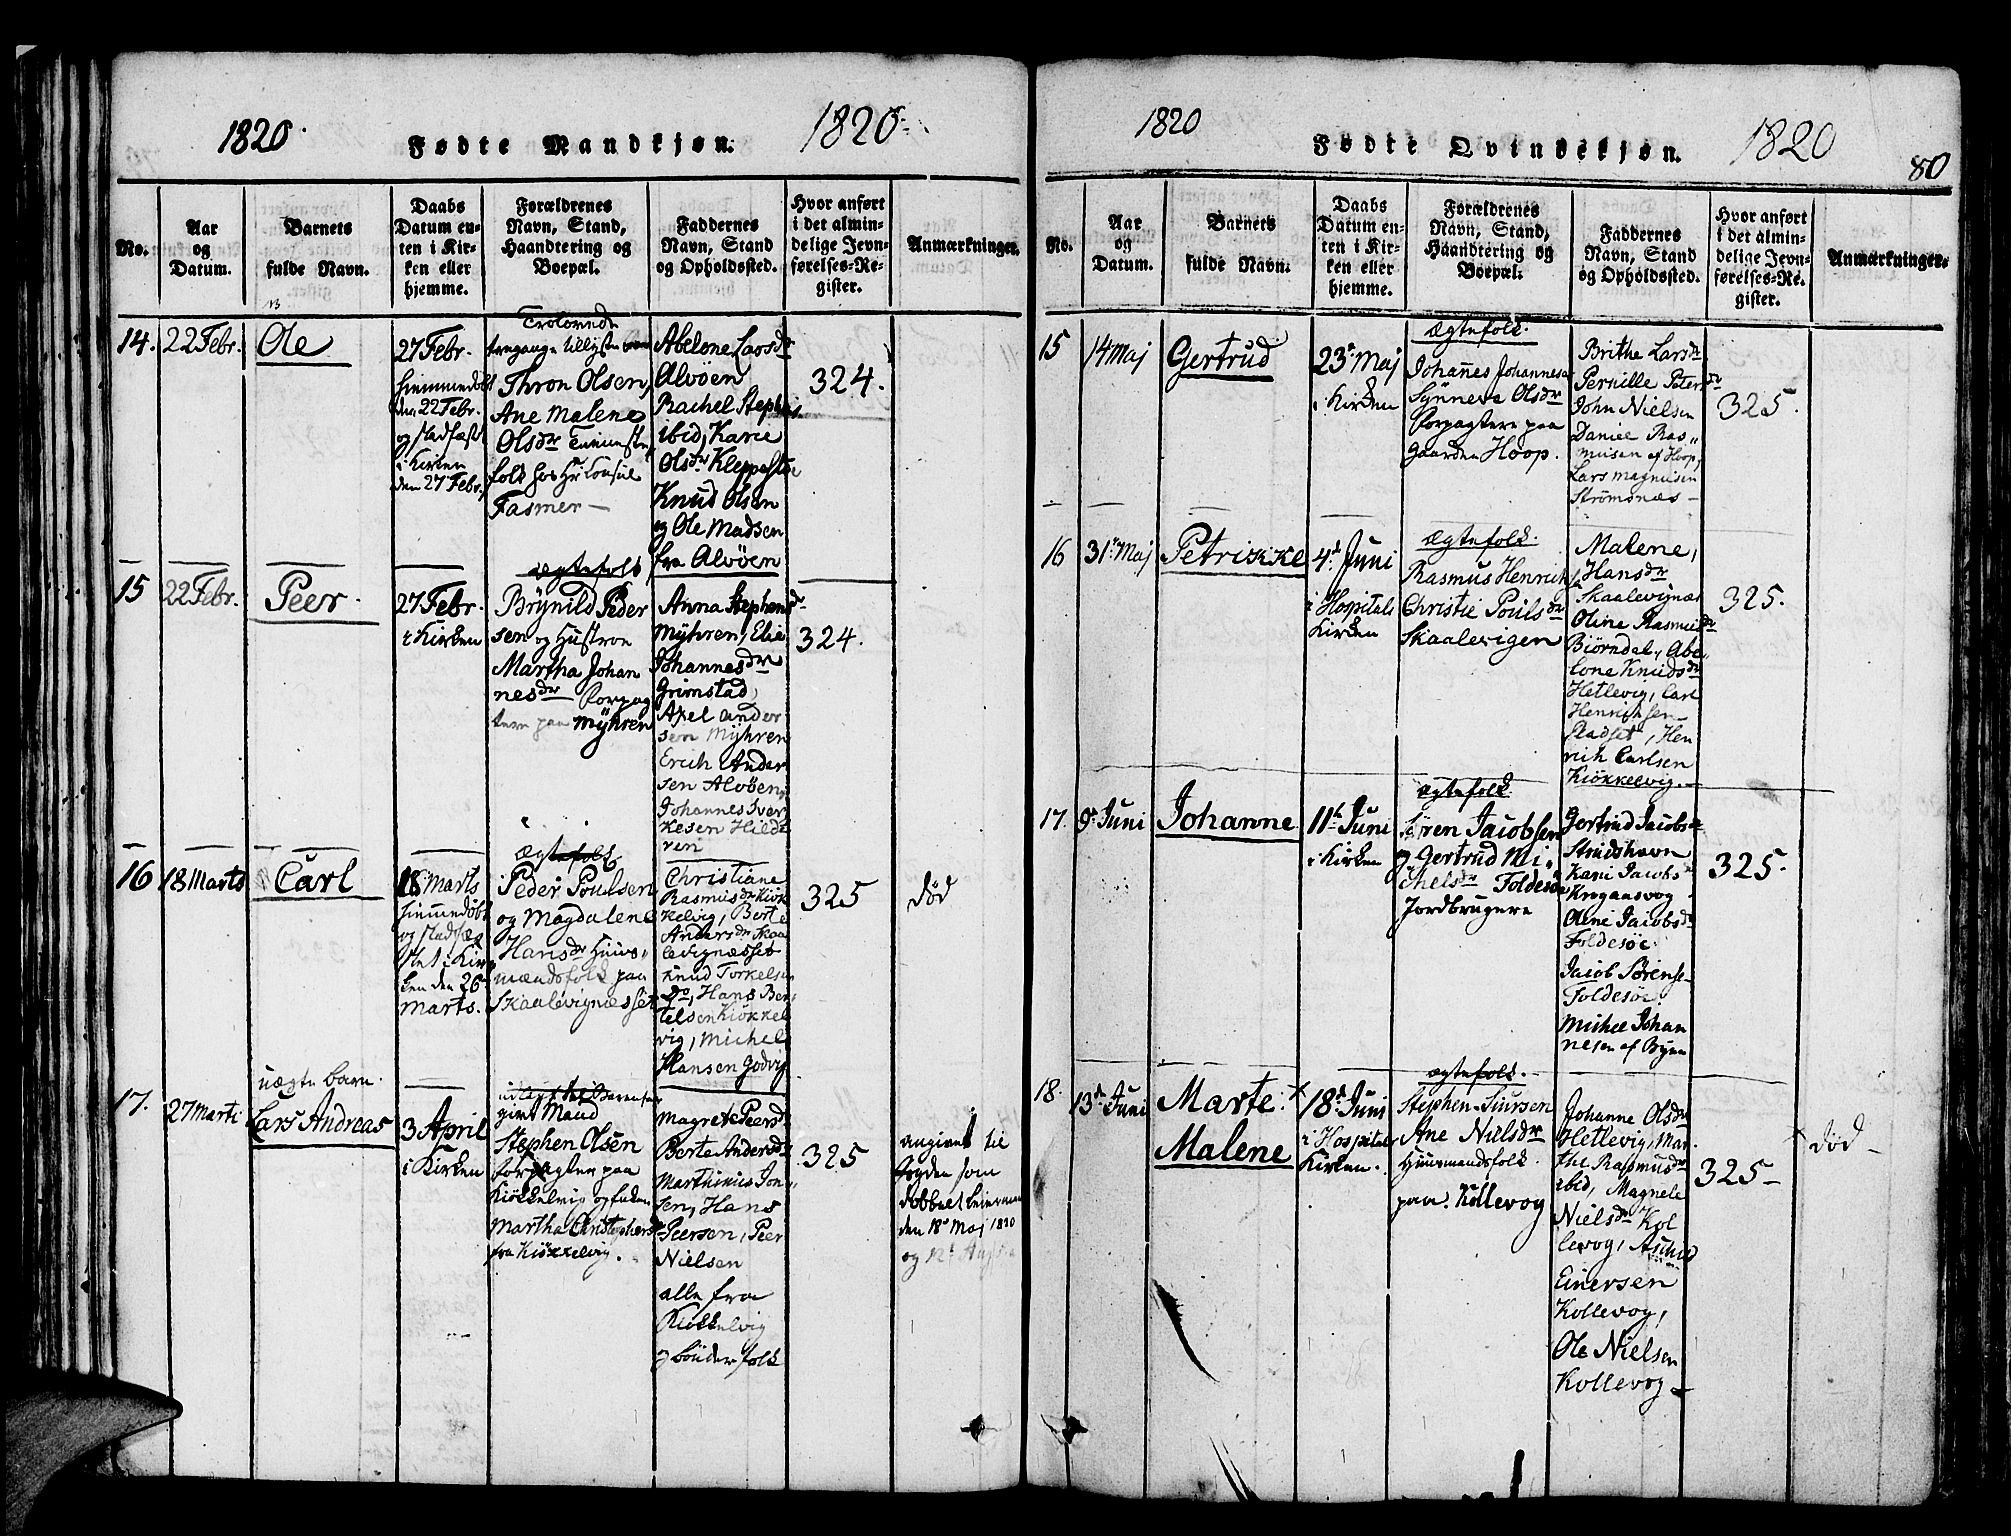 1820.
Fødte Mandkjøn.
1820.
No.
Aar
og
Datum.
Barnets
fulde Navn.
Daabs
Datum en-
ten i Kir-
ken eller
hjemme.
Forældrenes
Navn, Stand,
Haandtering og
Boepæl.
Faddernes
Navn, Stand
og Opholdssted.
Hvor anført
i det almin-
delige Jevn-
førelses-Re-
gister.
Anmærkninger.
14.
22 Febr.
Ole
27 Febr.
hiemmedøbt
den 22 Febr.
og stadfæst
i Kirken
den 27 Febr.
Trolovede
tregange tillyste
Thron Olsen,
Ane Malene
Olsdr Tieniste
folk hos Hr Consul
Fasmer —
Abelone Larsdr
Alvøen
Rachel Stephens
ibid, Karie
Olsdtr Kleppestøe
Knud Olsen
og Ole Madsen
fra Alvöen
324.
15
22 Febr.
Peer.
27 Febr.
i Kirken
Ægtefolk
Brÿnild Peder
sen og Hustroe
Martha Johan
nesdr Forpag
tere paa Mÿhren
Anna Stephensdr
Mÿhren, Elie
Johannesdr
Grimstad,
Axel Ander
sen Mÿhren
Erich Ander
sen Alvöen,
Johannes Iver
kesen Hild
ren
324.
16
18 Marts
Carl
18 Marts
hiemmedøbt
og stadfæ
stet i Kir
ken den 26
Marts.
Ægtefolk
Peder Poulsen
og Magdalene
Hansdr Huus
mandsfolk paa
Skaalevignesset
Christiane
Rasmusdr Kiøk
kelvig, Berte
Andersdr Skaa
levignæsset
Knud Torkelsen
Do, Hans Ber
telsen Kiøkkel
vig, Michel
Hansen Godvig
325
død
17.
27 Marti
uægte barn.
Lars Andreas
3 April
i Kirken
givt Mand
Stephen Olsen
forpagter paa
Kiøkkelvig og
Martha Christophersdr
fra Kiøkkelvig.
Magrete Peersdr
Berte Andersdr
Marthinus Jon
sen, Hans
Peersen, Peer
Nielsen
alle fra
Kiøkkelvig
Bønderfolk
325
angivet til
fogden som
dobbelt
den 18de Maj 1820
og 12t
1820
Fødte Qvindekjøn.
1820
80
No.
Aar
og
Datum.
Barnets
fulde Navn.
Daabs
Datum en-
ten i Kir-
ken eller
hjemme.
Forældrenes
Navn, Stand,
Haandtering og
Boepæl.
Faddernes
Navn, Stand
og Opholdssted.
Hvor anført
i det almin-
delige Jevn-
førelses-Re-
gister.
Anmærkninger.
15
14 Maj
Gertrud
23 Maj
i Kirken
Ægtefolk.
Johañes Johannesen
Sÿnneva Olsdr
Forpagtere paa
Gaarden Hoop.
Brithe Larsdr
Pernille Petersdr
John Nielsen
Daniel Ras
musen af Hoop,
Lars Magnusen
Strömsnæs —
325.
16
31 Maj
Petrikke
4d Juni
i Hospitals
Kirken
Ægtefolk.
Rasmus Henrichs
Christie Poulsdr
Skaalevigen
Malene,
Hansdr
Skaalevignæs
Oline Rasmusdr
Biørndal, Abe
lone Knudsdr
Hetlevig, Carl
Henrichsen
Stadset, Hen
rich Carlsen
Kiøkkelvig. —
325.
17.
9. Juni
Johanne
11t Juni
i Kirken
Ægtefolk.
Søren Jacobsen
og Gertrud Mi
chelsdr Foldesøe
Jordbrugere
Gertrud Jacobsdr
Strudshavn
Kari Jacobsdr
Krogaasvog
Oline Jacobsdr
Foldesøe
Jacob Sørense
Foldesøe
Michel Johan
nesen af Bÿen
325.
18.
13d Juni
Marte. +
Malene
18d Juni
i Hospitals
Kirken.
Ægtefolk.
Stephen Siursen
Ane Nielsdr
Huusmandsfolk
paa Kollevog
Johanne Olsdr
Hetlevig, Mar
the Rasmusdr
ibid, Magnele
Nielsdr Kol
levog,
Einersen
Kollevog,
Ole Nielsen
Kollevog —
325 —
+ død —